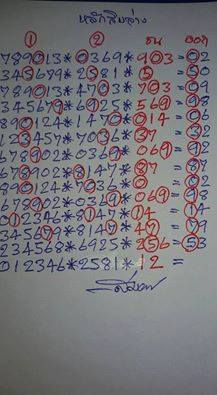 หลักสิบล่าง
1 2 ชน ออก
789013*0369*903=02
345689*2581*5=50
789013*4703*703=09
345679*6925*569=98
890124*1470*014=04
123457*7036*37=32
678902*0369*069=92
678902*8147*87=87
890124*7036*0=02
678902*0369*069=98
012346*8147*14=14
345679*8147*47=79
234568*6925*256=53
012346*2581*12=